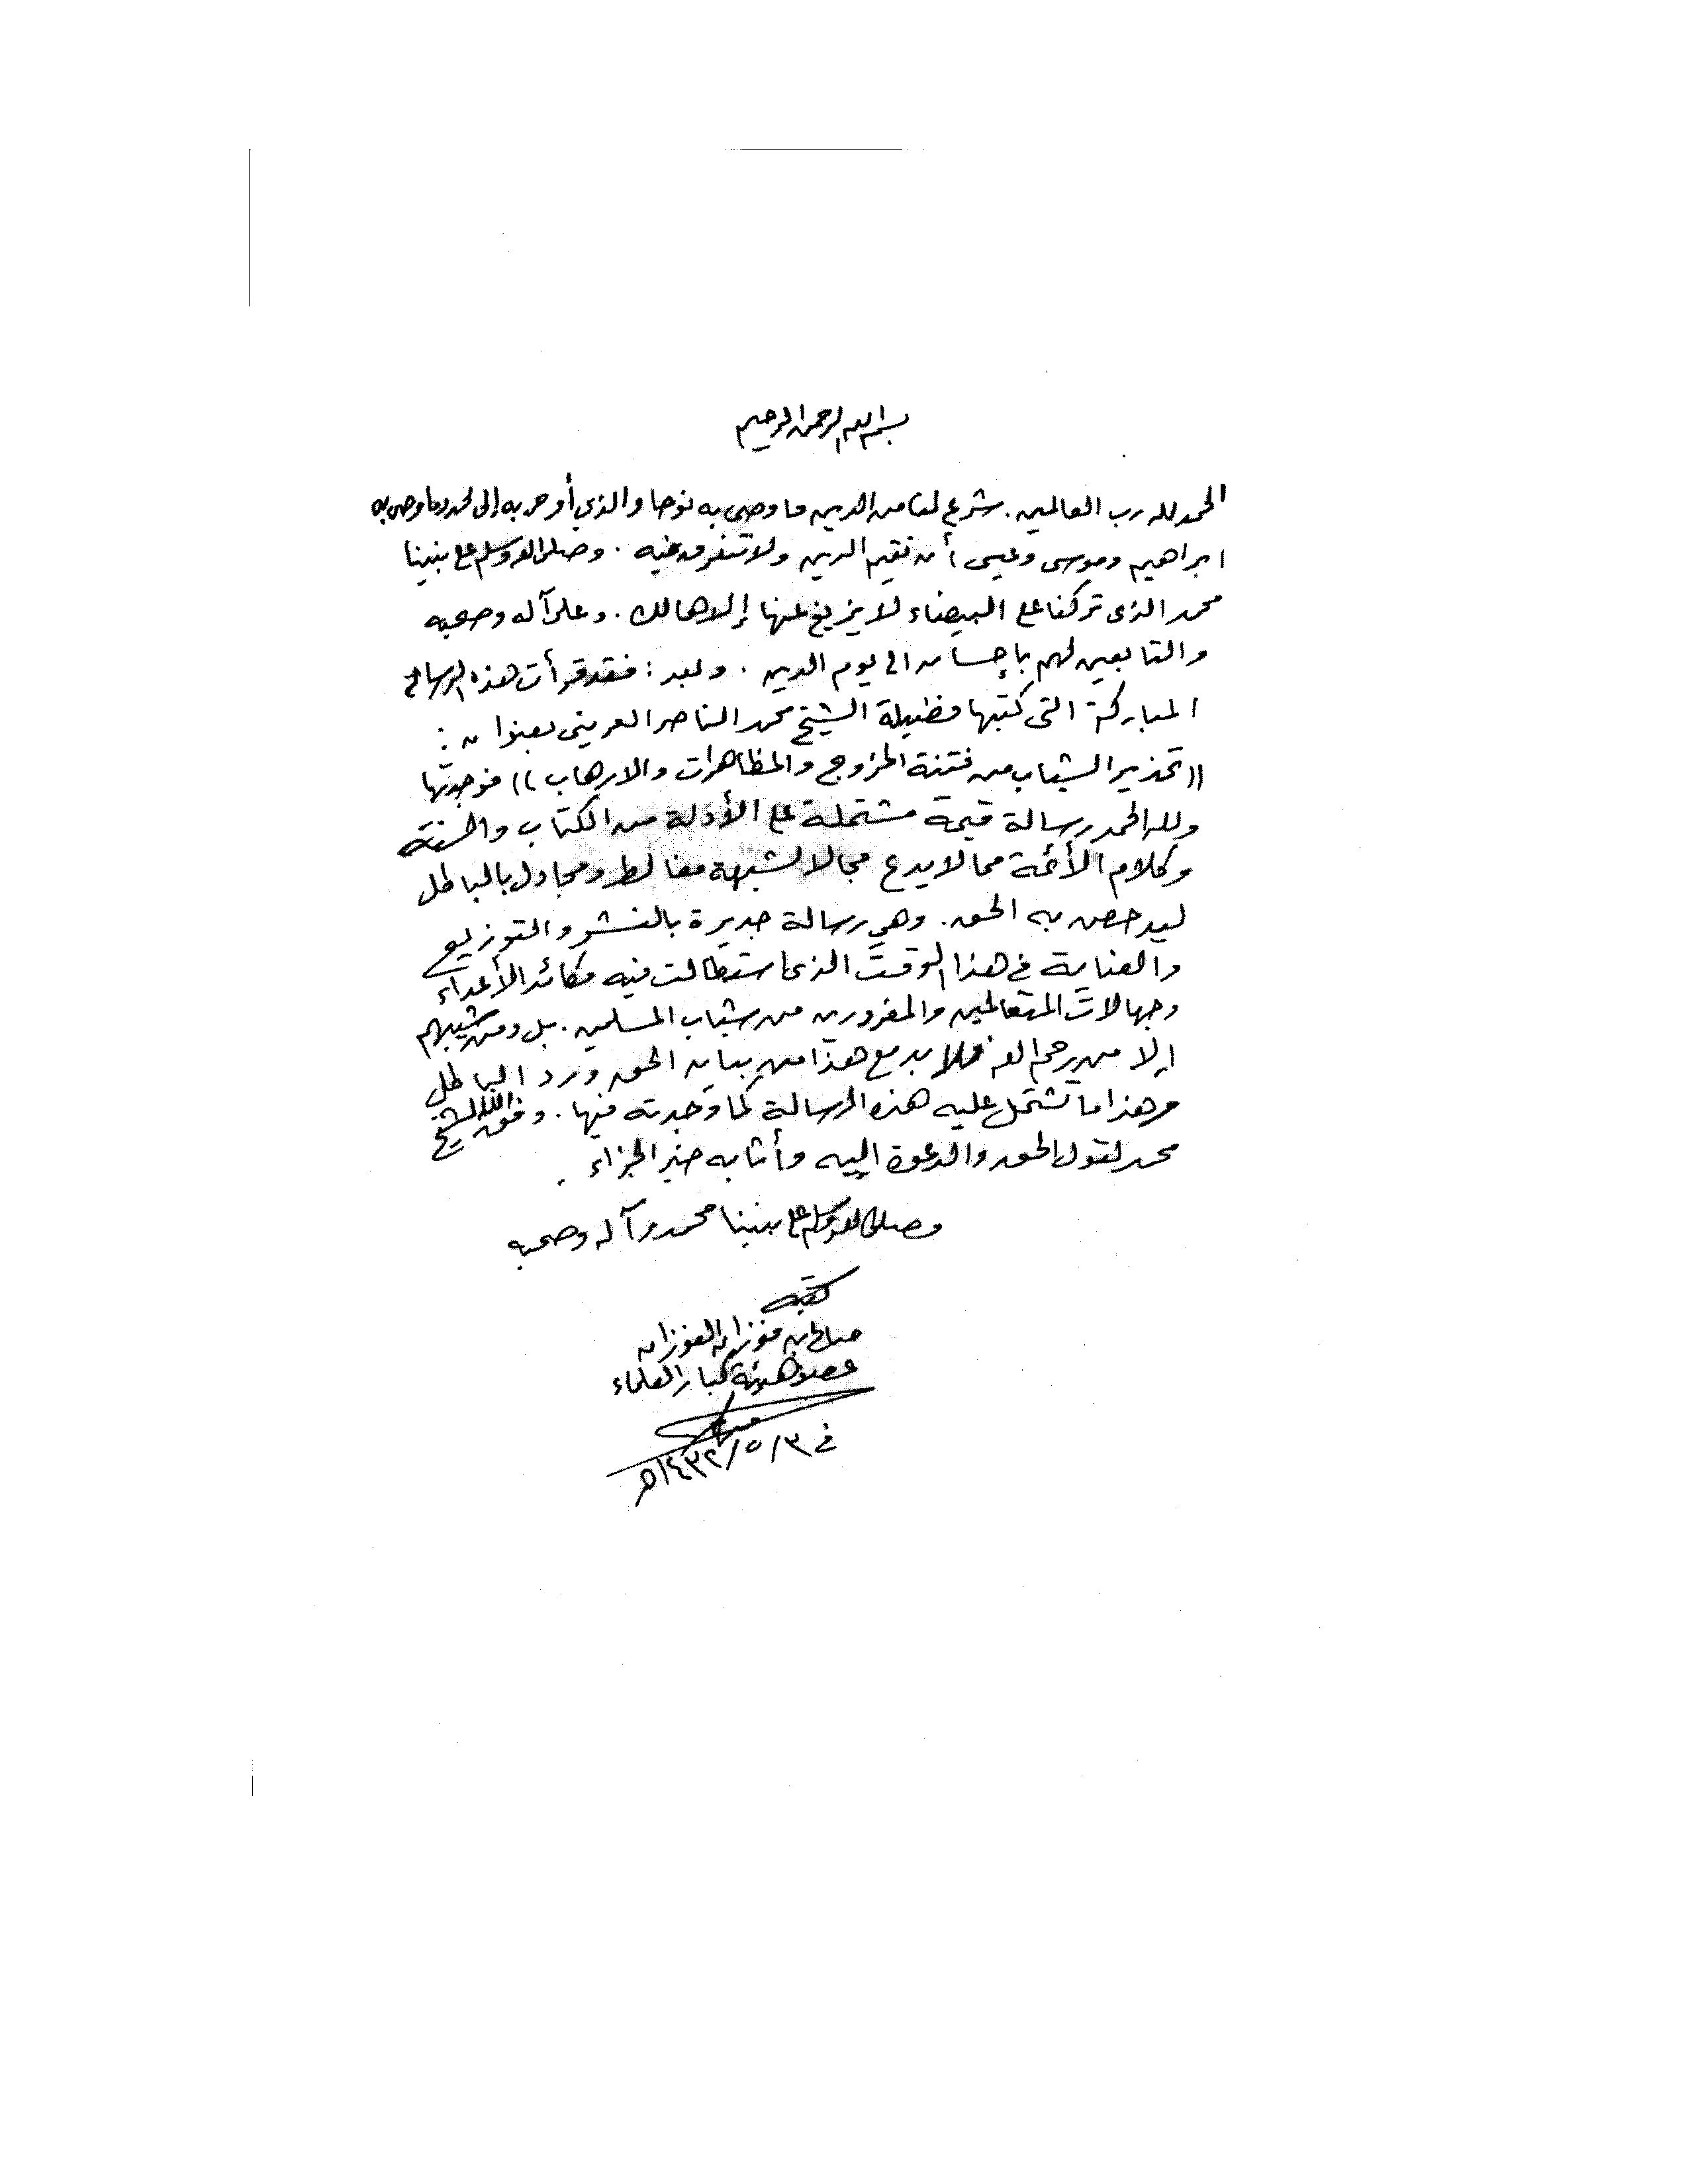 بسم الله الرحمن الرحيم
الحمد لله رب العالمين. شرع لنا من الدين ما وصى به نوحا والذي أوحى به إلى محمد وما وصى به
ابراهيم وموسى وعيسى أن نقيم الدين ولا نتفرق فيه . وصلى الله وسلم على نبينا
محمد الذى تركنا على البيضاء لا يزيغ عنها إلا هالك . وعلى آله وصحبه
والتابعين لهم بإحسان الى يوم الدين . وبعد : فقد قرأت هذه الرسالة
المباركة التى كتبها فضيلة الشيخ محمد الناصر العرينى بعنوان :
((تحذير الشباب من فتنة الخروج والمظاهرات والارهاب)) فوجدتها
ولله الحمد رسالة قيمة مشتملة على الأدلة من الكتاب والسنة
وكلام الأئمة مما لا يدع مجالا لشبهة مغالط ومجادل بالباطل
ليدحض به الحق. وهي رسالة جديرة بالنشر والتوزيع
والعناية في هذا الوقت الذى استطالت فيه مكائد الأعداء
وجهالات المتعالمين والمغرورين من شباب المسلمين. بل ومن شيبهم
إلا من رحم الله فلا بد مع هذا من بيان الحق ورد الباطل
وهذا ما تشتمل عليه هذه الرسالة كما وجدته فيها . وفق الله الشيخ
محمد لقول الحق والدعوة اليه وأثابه خير الجزاء .
وصلى الله وسلم على نبينا محمد وآله وصحبه
كتبه
صالح بن فوزان الفوزان
عضو هيئة كبار العلماء
في ٣/٥/١٤٣٢هـ